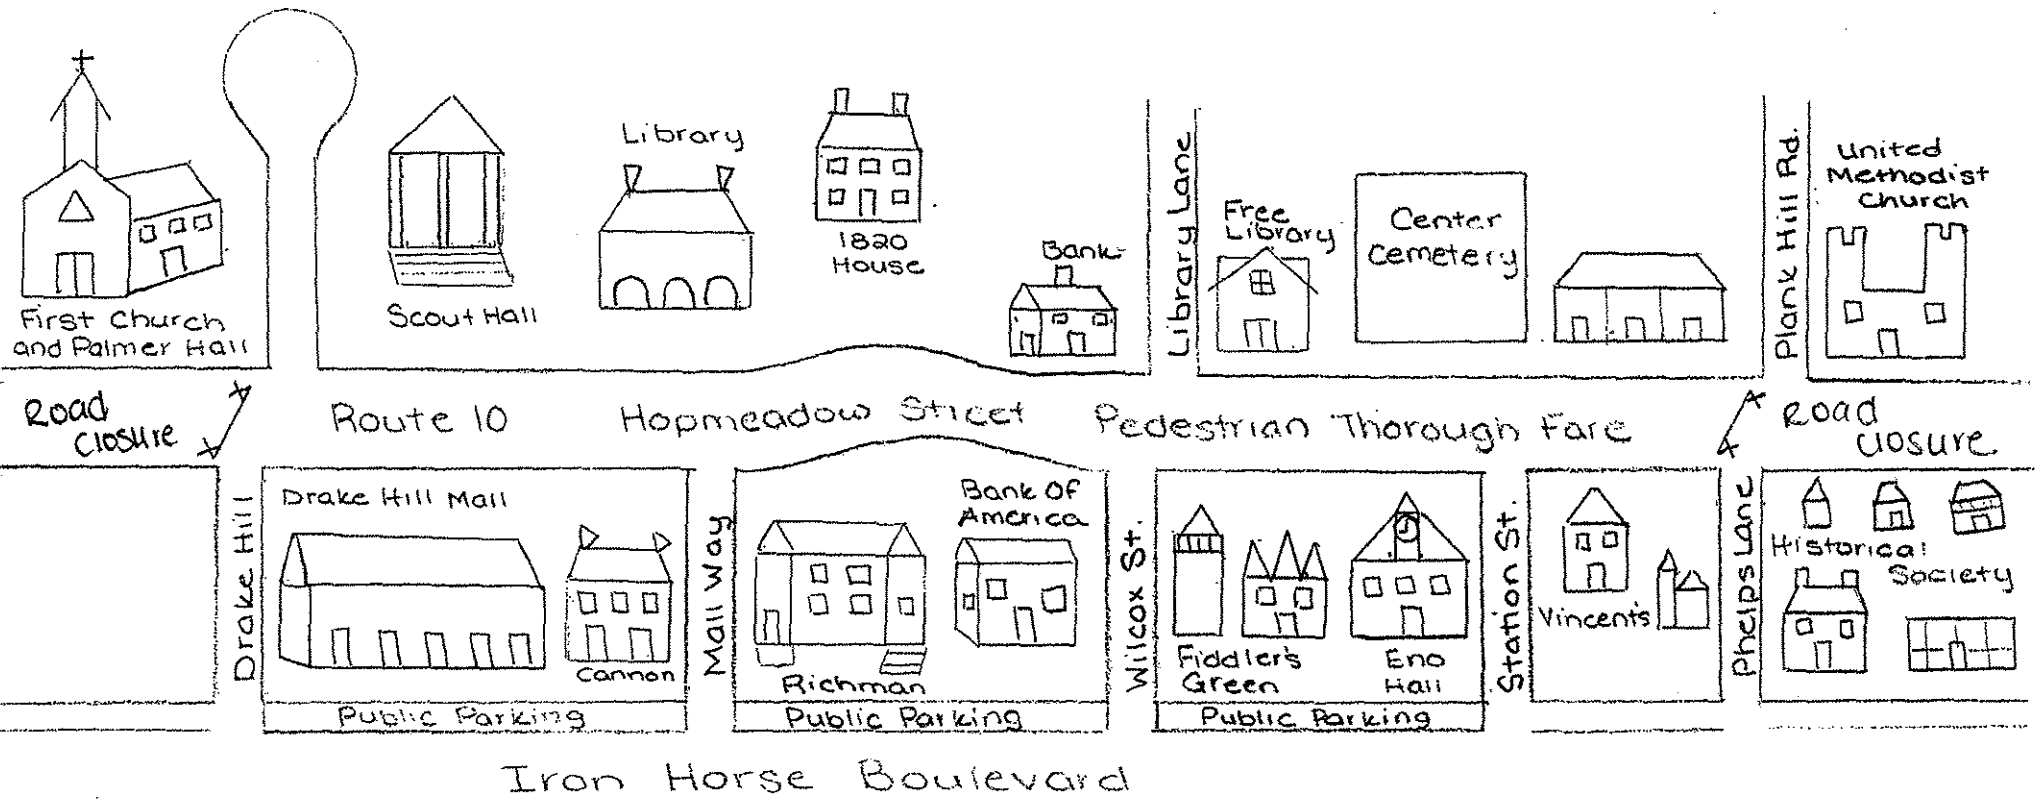 First Church
and Palmer Hall
Scout Hall
Library
1820
House
Bank
Library Lane
Free
Library
Center
Cemetery
Plank Hill Rd.
United
Methodist
Church
Road
Closure
Route 10 Hopmeadow Street Pedestrian Thorough Fare
Road
Closure
Drake Hill
Drake Hill Mall
Cannon
Public Parking
Mall Way
Richman
Bank Of
America
Public Parking
Wilcox St.
Fiddler's
Green
Eno
Hall
Public Parking
Station St.
Vincent's
Phelps Lane
Historical
Society
Iron Horse Boulevard